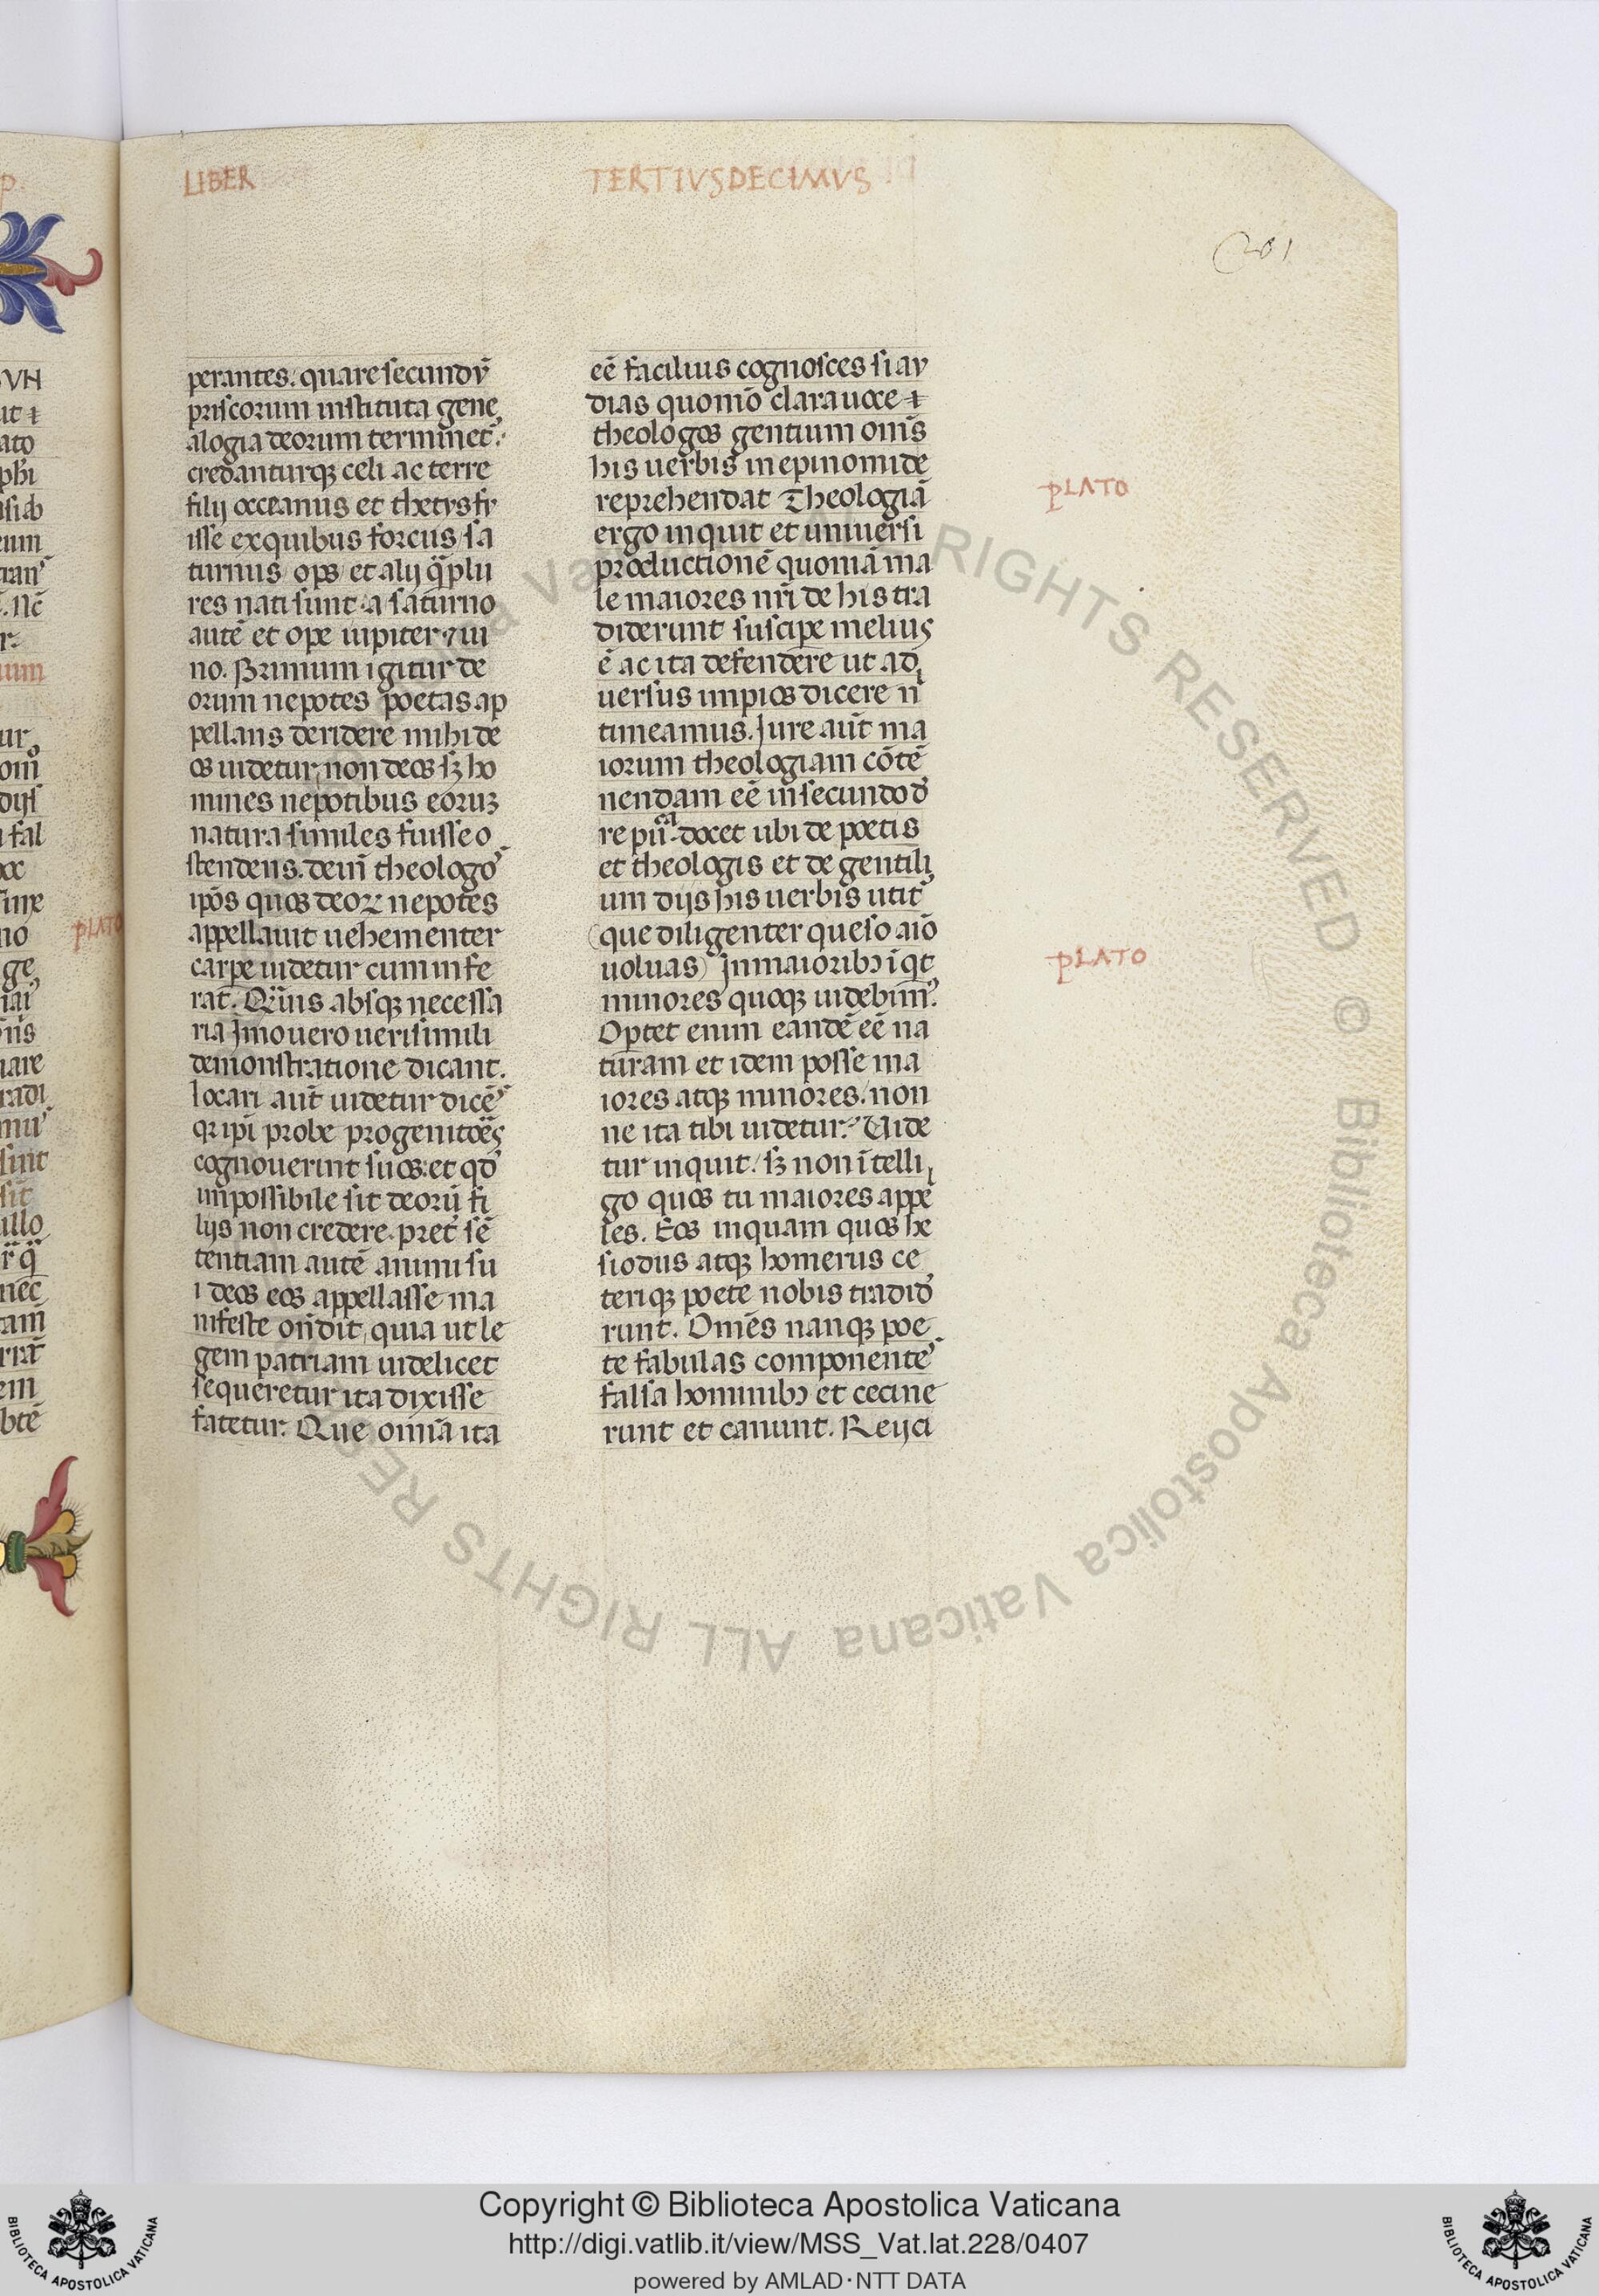 LIBER
TERTIVSDECIMVS
201
perantes. quare secundũ
priscorum instituta gene
alogia deorum terminet̃.
credanturq; celi ac terre
filij occeanus et thetys fu
isse ex quibus forcus / sa
turnus / ops / et alij q̃plu
res nati sunt. a saturno
autẽ et ope iupiter ⁊ iu
no. Primum igitur de
orum nepotes poetas ap
pellans deridere mihi de
os uidetur, non deos sʒ ho
mines nepotibus eoruʒ
natura similes fuisse o
stendens. dein̄ theologoˀ
ip̃os quos deoꝝ nepotes
appellauit uehementer
carpe uidetur cum infe
rat. Quis absq; necessa
ria Jmouero uerisimili
demonstratione dicant.
locari aut̃ uidetur dicẽˀ
qꝛ ipĩ probe progenitoẽs
cognouerint suos: et qđ
impossibile sit deorũ fi
lijs non credere. pret̃ sẽ
tentiam autẽ animi su
i deos eos appellasse ma
nifeste oñdit, quia ut le
gem patriam uidelicet
sequeretur ita dixisse
fatetur. Que om̃ia ita
eẽ facilius cognosces si au
dias quom̃o clara uoce ⁊
theologos gentium om̃s
his uerbis in epinomide
reprehendat Theologiã
ergo inquit et uniuersi
productionẽ quoniã ma
le maiores nr̃i de his tra
diderunt suscipe melius
ẽ ac ita defendere ut ad
uersus impios dicere ñ
timeamus. Jure aut̃ ma
iorum theologiam cõtẽ
nendam eẽ in secundo đ
re pũᶜᵃ docet ubi de poetis
et theologis et de gentili
um dijs his uerbis utit̃
(que diligenter queso aiõ
uoluas) Jn maioribꝫ ĩqt
minores quoq; uidebim̃ˀ.
Optet enim eandẽ eẽ na
turam et idem posse ma
iores atq; minores. non
ne ita tibi uidetur. Uide
tur inquit. sʒ non ĩtelli
go quos tu maiores appe
les. Eos inquam quos he
siodus atq; homerus ce
teriq; poete nobis tradid̃
runt. Om̃es nanq; poe
te fabulas componenteˀ
falsa hominibꝫ et cecine
runt et canunt. Reyci
pLATO
pLATO
pLATO
Copyright © Biblioteca Apostolica Vaticana
http://digi.vatlib.it/view/MSS_Vat.lat.228/0407
powered by AMLAD·NTT DATA
BIBLIOTECA APOSTOLICA VATICANA
BIBLIOTECA APOSTOLICA VATICANA